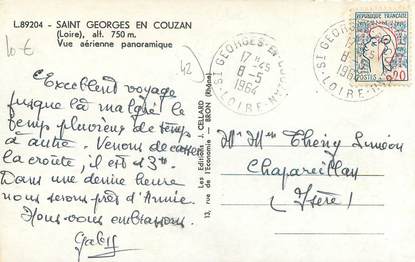 L.89204 - SAINT GEORGES EN COUZAN
(Loire), alt. 750 m.
Vue aérienne panoramique
10 €
42
Excellent voyage
jusque là malgré le
temps pluvieux de temps
à autre. Venons de casser
la croûte, il est 13h.
Dans une demie heure
nous serons près d'
Nous vous embrassons.
Gaby
Les Editions "CELLARD"
13, rue de l'Economie BRON (Rhône)
ST GEORGES-EN-
17H-45
8-5
1964
LOIRE
REPUBLIQUE FRANÇAISE
POSTES
0,20
ST GEORGES-EN-
17H-45
8-5
1964
LOIRE
Mr Mme Théry Siméon
Chapareillan
(Isère)